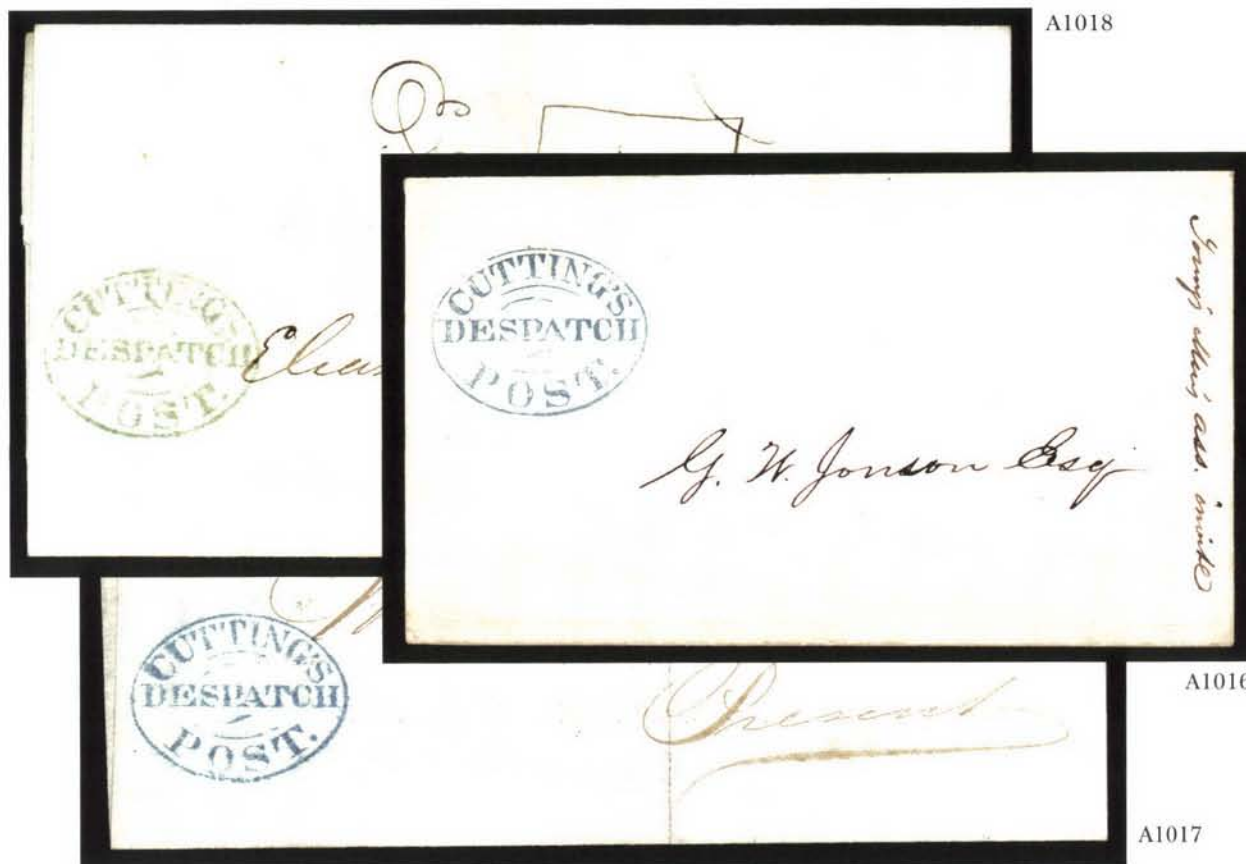 A1018
CUTTING'S
DESPATCH
POST.
CUTTING'S
DESPATCH
POST.
G. W. Jonson Esq
Young Men's ass. inside
A1016
CUTTING'S
DESPATCH
POST.
Present
A1017